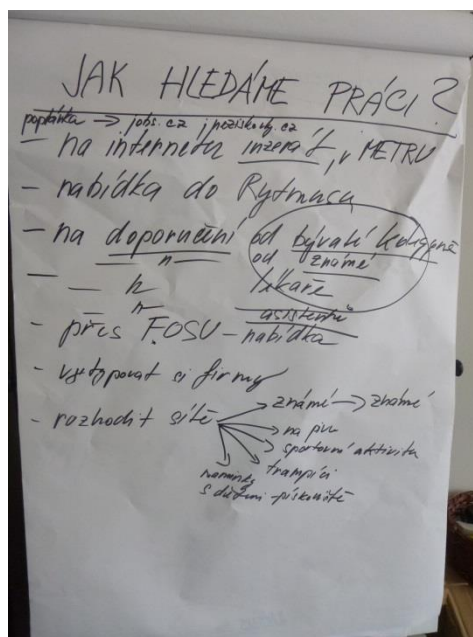 JAK HLEDÁME PRÁCI?
poptávka → jobs.cz, neziskovky.cz
- na internetu inzerát, v METRU
- nabídka do Rytmusu
- na doporučení od bývalé kolegyně
- — " — od známé
- — " — lékaře
asistentů
- přes FOSU - nabídka
- vytypovat si firmy
- rozhodit sítě
známé → známé
na pivu
sportovní aktivita
trampíci
maminky
s dětmi - pískoviště